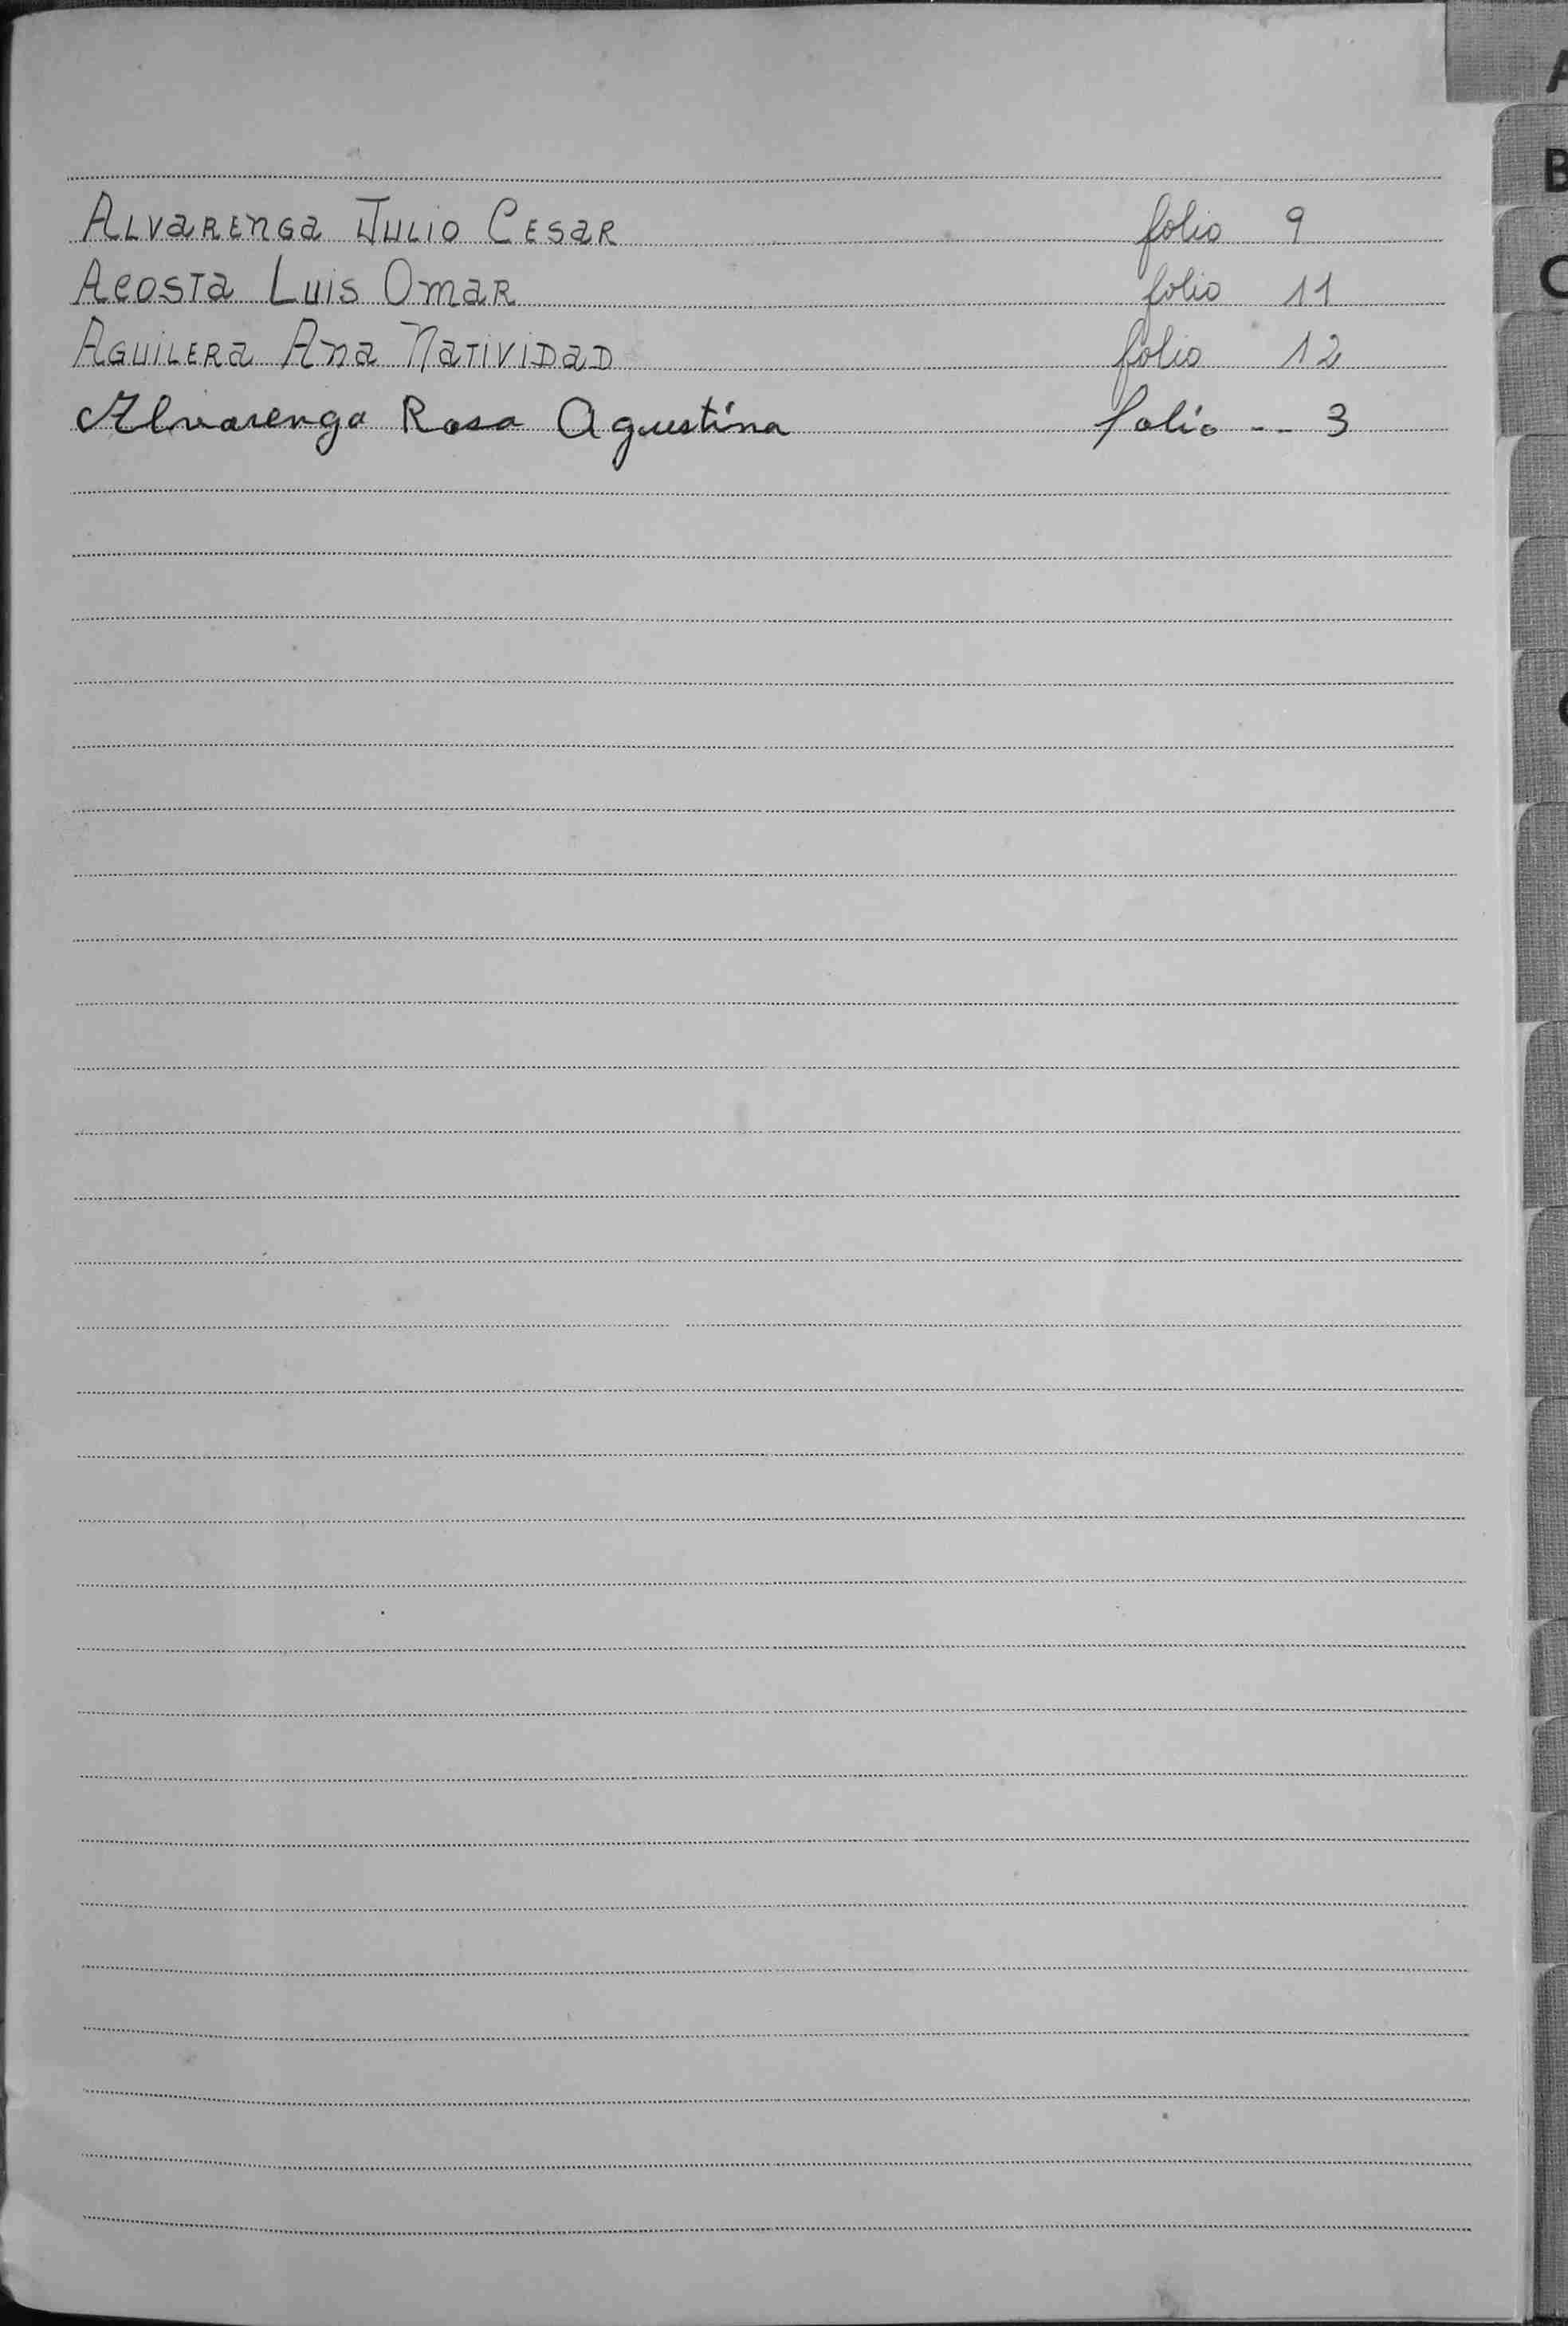 A
B
C
Alvarenga Julio Cesar folio 9
Acosta Luis Omar folio 11
Aguilera Ana Natividad folio 12
Alvarenga Rosa Agustina folio -- 3